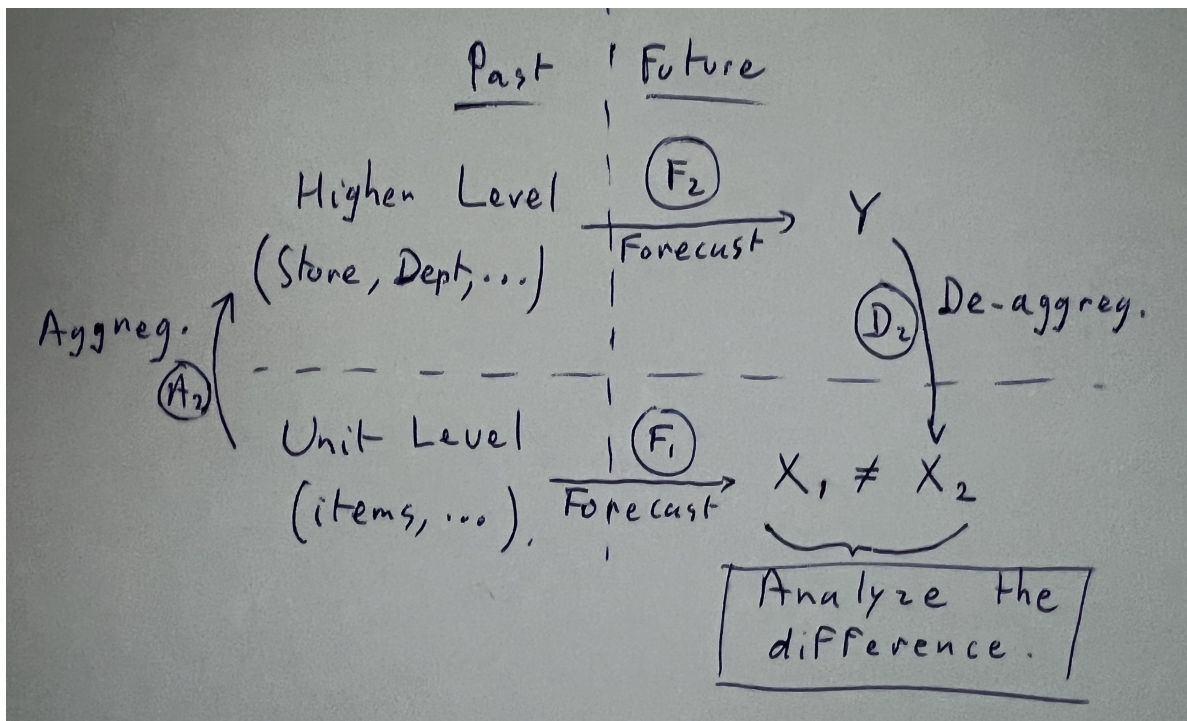 Past Future
Higher Level
(Store, Dept,...)
F₂
Forecast
Y
Aggreg.
A₂
D₂
De-aggreg.
Unit Level
(items, ...).
F₁
Forecast
X₁ ≠ X₂
Analyze the
difference.